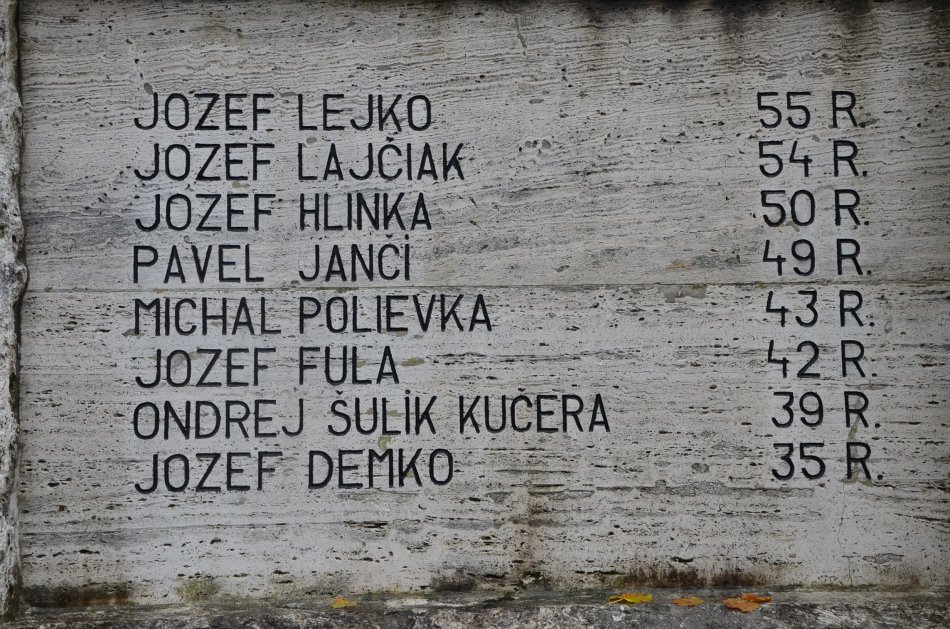 JOZEF LEJKO 55 R.
JOZEF LAJČIAK 54 R.
JOZEF HLINKA 50 R.
PAVEL JANČI 49 R.
MICHAL POLIEVKA 43 R.
JOZEF FULA 42 R.
ONDREJ ŠULIK KUČERA 39 R.
JOZEF DEMKO 35 R.